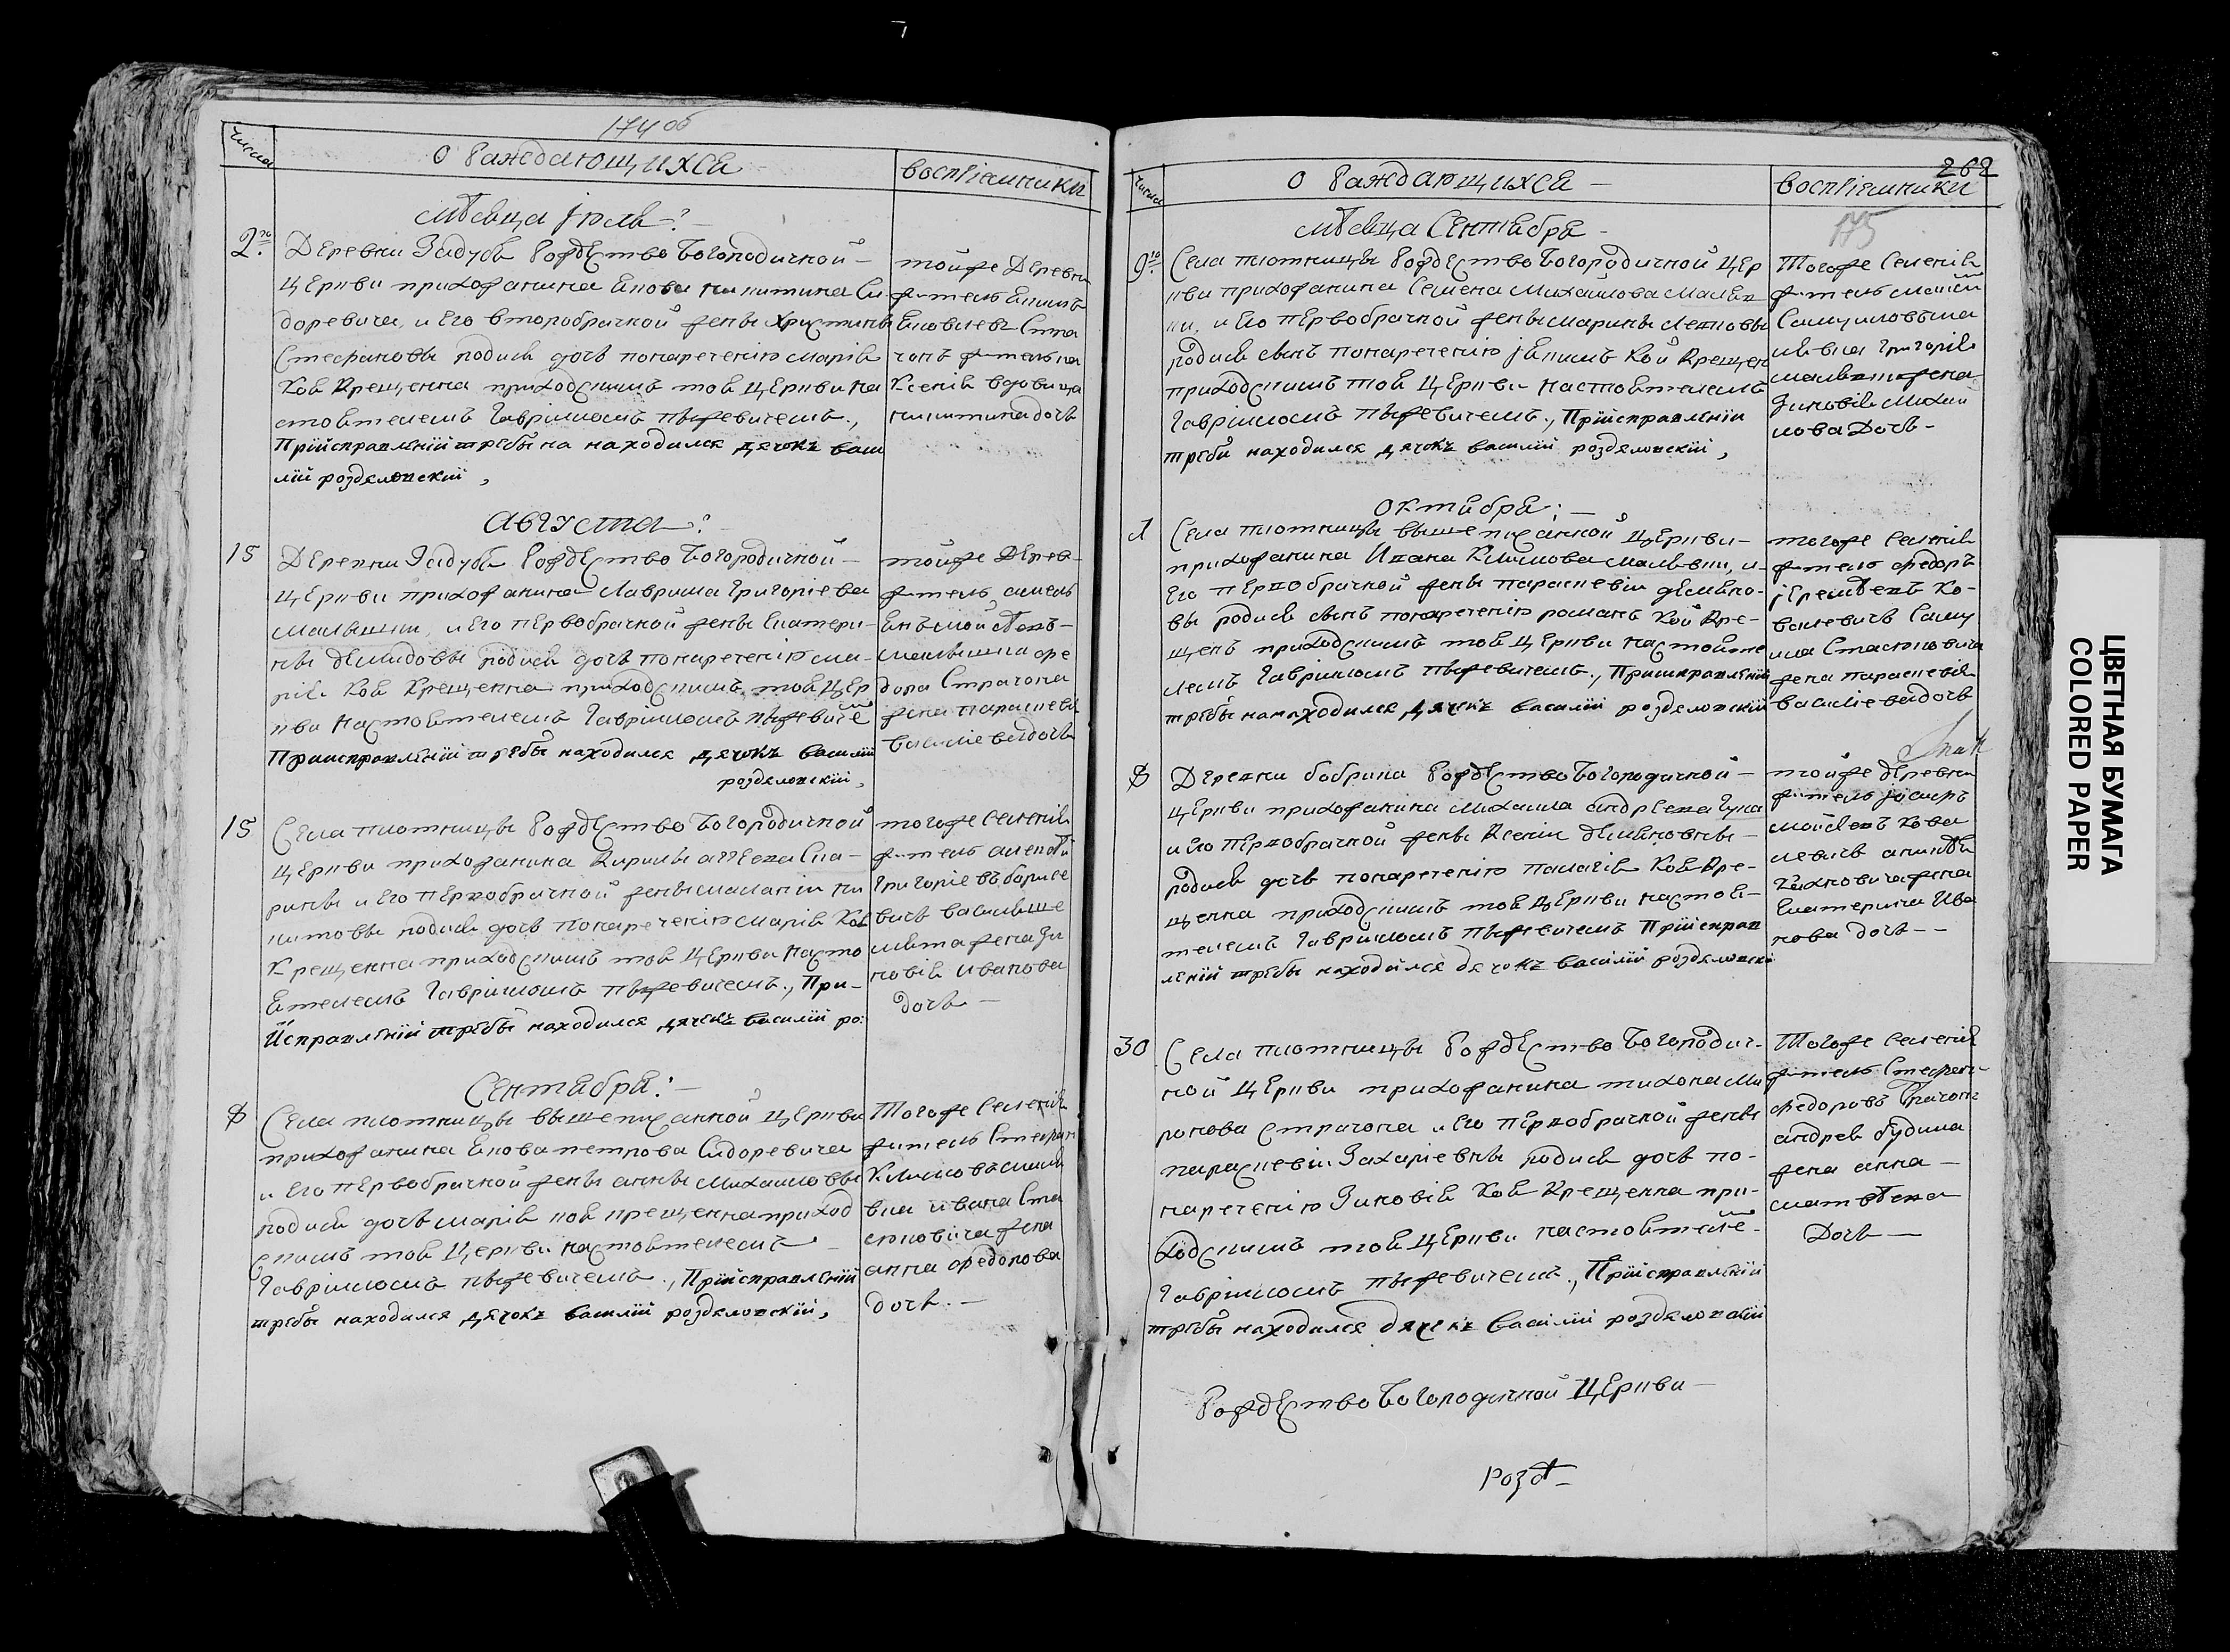 174 об
числа
О Раждающихся
воспріемники
мѣсяца іюль
2го
Деревни Задубя Рождество Богородичной
церкви прихожанина Якова Никитина Си-
доревича, и его второбрачной жены Христины
Стефановы родися дочь понареченію марія
Коя Крещенна приходскимъ тоя церкви на
стоятелемъ Гавріиломъ пыжевичемъ.,
Прійсправленій требы на находился дячокъ васи
лій роздяловскій,
тойже Деревни
житель Якимъ
Яковлевъ Ста
житель на
Ксенія вдовица
никитина дочь
Августа
15
Деревни Задубя Рождество Богородичной
церкви прихожанина Лаврина Григоріева
Малышки, и его первобрачной жены Екатери-
ны Демидовы родися дочь понареченію ма-
рія Коя Крещенна приходскимъ тоя Цер
кви настоятелемъ Гавріиломъ пыжевиче
Приисправленій требы находился дячокъ василій
роздяловскій,
тойже Дерев-
житель
дора Страчона
жена параскевія
василіева дочь
15
Села плотницы Рождество Богородичной
церкви прихожанина Кирилы
и его первобрачной жены маланіи Ни
китовы родися дочь понареченію марія Коя
Крещенна приходскимъ тоя Церкви насто
ятелемъ Гавріиломъ пыжевичемъ., При-
йсправленій требы находился дячокъ василій ро:
тогоже селенія
житель алексѣй
Григоріевъ борисе
вичъ
жена Зи
новія Иванова
дочь
Сентября:
8
Села плотницы вышеписанной церкви
прихожанина Якова петрова Сидоревича
и его первобрачной жены анны Михаиловы
родися дочь марія коя крещенна приход
скимъ тоя Церкви настоятелемъ
Гавріиломъ пыжевичемъ., Прійсправленій
требы находился дячокъ василій роздяловскій,
Тогоже селенія
житель Стефан
ивана Ста
сюковича жена
анна федорова
дочь.
262
числа
О Раждающихся
воспріемники
175
мѣсяца Сентября
9го
Села плотницы Рождество Богородичной Цер
кви прихожанина Семена Михаилова Малыш
ки, и его первобрачной жены Марины
родися сынъ понареченію іякимъ Кой Крещен
приходскимъ тоя церкви настоятелемъ
Гавріиломъ пыжевичемъ., Прійсправленій
требы находился дячокъ василій роздяловскій,
Тогоже селенія
житель
Григорія
жена
Зиновія Михаи
лова Дочь
Октября:
1
Села плотницы вышеписанной Церкви
прихожанина Ивана Климова Малышки, и
его первобрачной жены параскевіи демяно-
вы родися сынъ понареченію романъ Кой Кре-
щенъ приходскимъ тоя церкви настояте
лемъ Гавріиломъ пыжевичемъ., Приисправленій
требы нанаходился дячокъ василій роздяловскій
тогоже селенія
житель федоръ
іеремѣевъ Ко-
валевичъ Саму
ила Стасюковича
жена параскевія
василіева дочь
8
Деревни бобрика Рождество Богородичной
церкви прихожанина Михаила андреева Гука
и его первобрачной жены Ксеніи демяновны
родися дочь понареченію палагія Коя Кре-
щенна приходскимъ тоя Церкви настоя-
телемъ Гавріиломъ пыжевичемъ Прійсправ
леній требы находился дячокъ василій роздяловскі
тойже деревни
житель іосифъ
Мойсеевъ Кова
левичъ
жена
Екатерина Ива
нова дочь
30
Села плотницы Рождество Богородич-
ной церкви прихожанина тихона Ми
ронова Страчона и его первобрачной жены
параскевіи Захаріевны родися дочь по-
нареченію Зиновія Коя Крещенна при-
ходскимъ тоя церкви настоятеле-
Гавріиломъ пыжевичемъ., Прійсправленій
требы находился дячокъ василій роздяловскій
Тогоже селенія
житель Стефан
федоровъ Страчон
андрея будила
жена анна
матвѣева
Дочь
Рождество Богородичной Церкви
Розд
ЦВЕТНАЯ БУМАГА
COLORED PAPER